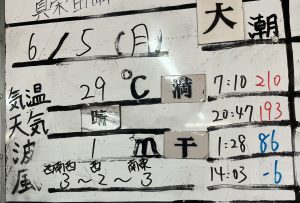 6/5(月) 大潮
気温 29℃ 満 7:10 210
天気 晴 20:47 193
波 1m 干 1:28 86
風 西南西 西 南東 14:03 -6
3~2~3